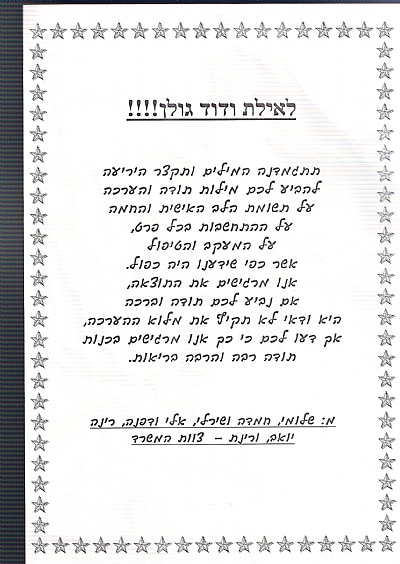 לאילת ודוד גולן!!!!
תתגמדנה המילים ותקצר היריעה
להביע לכם מילות תודה והערכה
על תשומת הלב האישית והחמה
על ההתחשבות בכל פרט,
על המעקב והטיפול
אשר כפי שידענו היה כפול.
אנו מרגישים את התוצאה,
אם נביע לכם תודה וברכה
היא ודאי לא תקיף את מלוא ההערכה,
אך דעו לכם כי כך אנו מרגישים בכנות
תודה רבה והרבה בריאות.
מ: שלומי, חמדה ושירלי, אלי ודפנה, רינה
יואב, ורינת – צוות המשרד